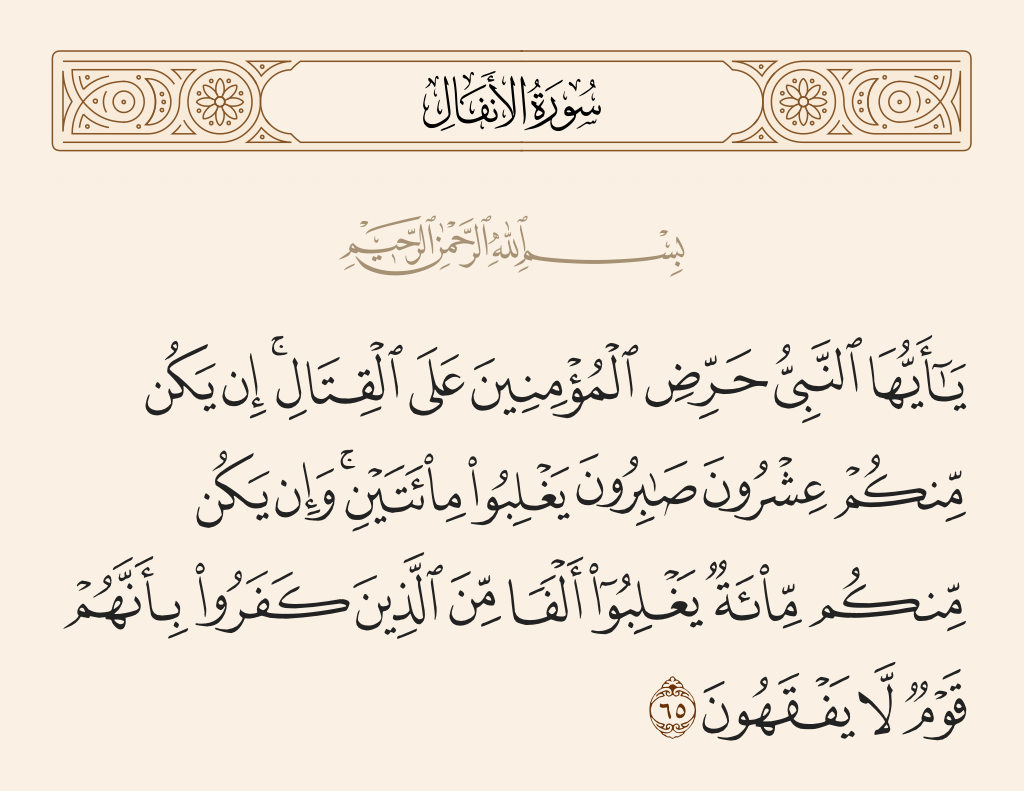 سُورَةُ الأَنفَالِ
بِسْمِ ٱللَّهِ ٱلرَّحْمَٰنِ ٱلرَّحِيمِ
يَٰٓأَيُّهَا ٱلنَّبِىُّ حَرِّضِ ٱلْمُؤْمِنِينَ عَلَى ٱلْقِتَالِ ۚ إِن يَكُن
مِّنكُمْ عِشْرُونَ صَٰبِرُونَ يَغْلِبُوا۟ مِا۟ئَتَيْنِ ۚ وَإِن يَكُن
مِّنكُم مِّا۟ئَةٌ يَغْلِبُوٓا۟ أَلْفًا مِّنَ ٱلَّذِينَ كَفَرُوا۟ بِأَنَّهُمْ
قَوْمٌ لَّا يَفْقَهُونَ ٦٥